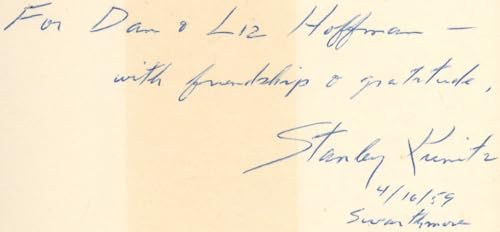 For Dan & Liz Hoffman —
with friendship & gratitude,
Stanley Kunitz
4/16/59
Swarthmore